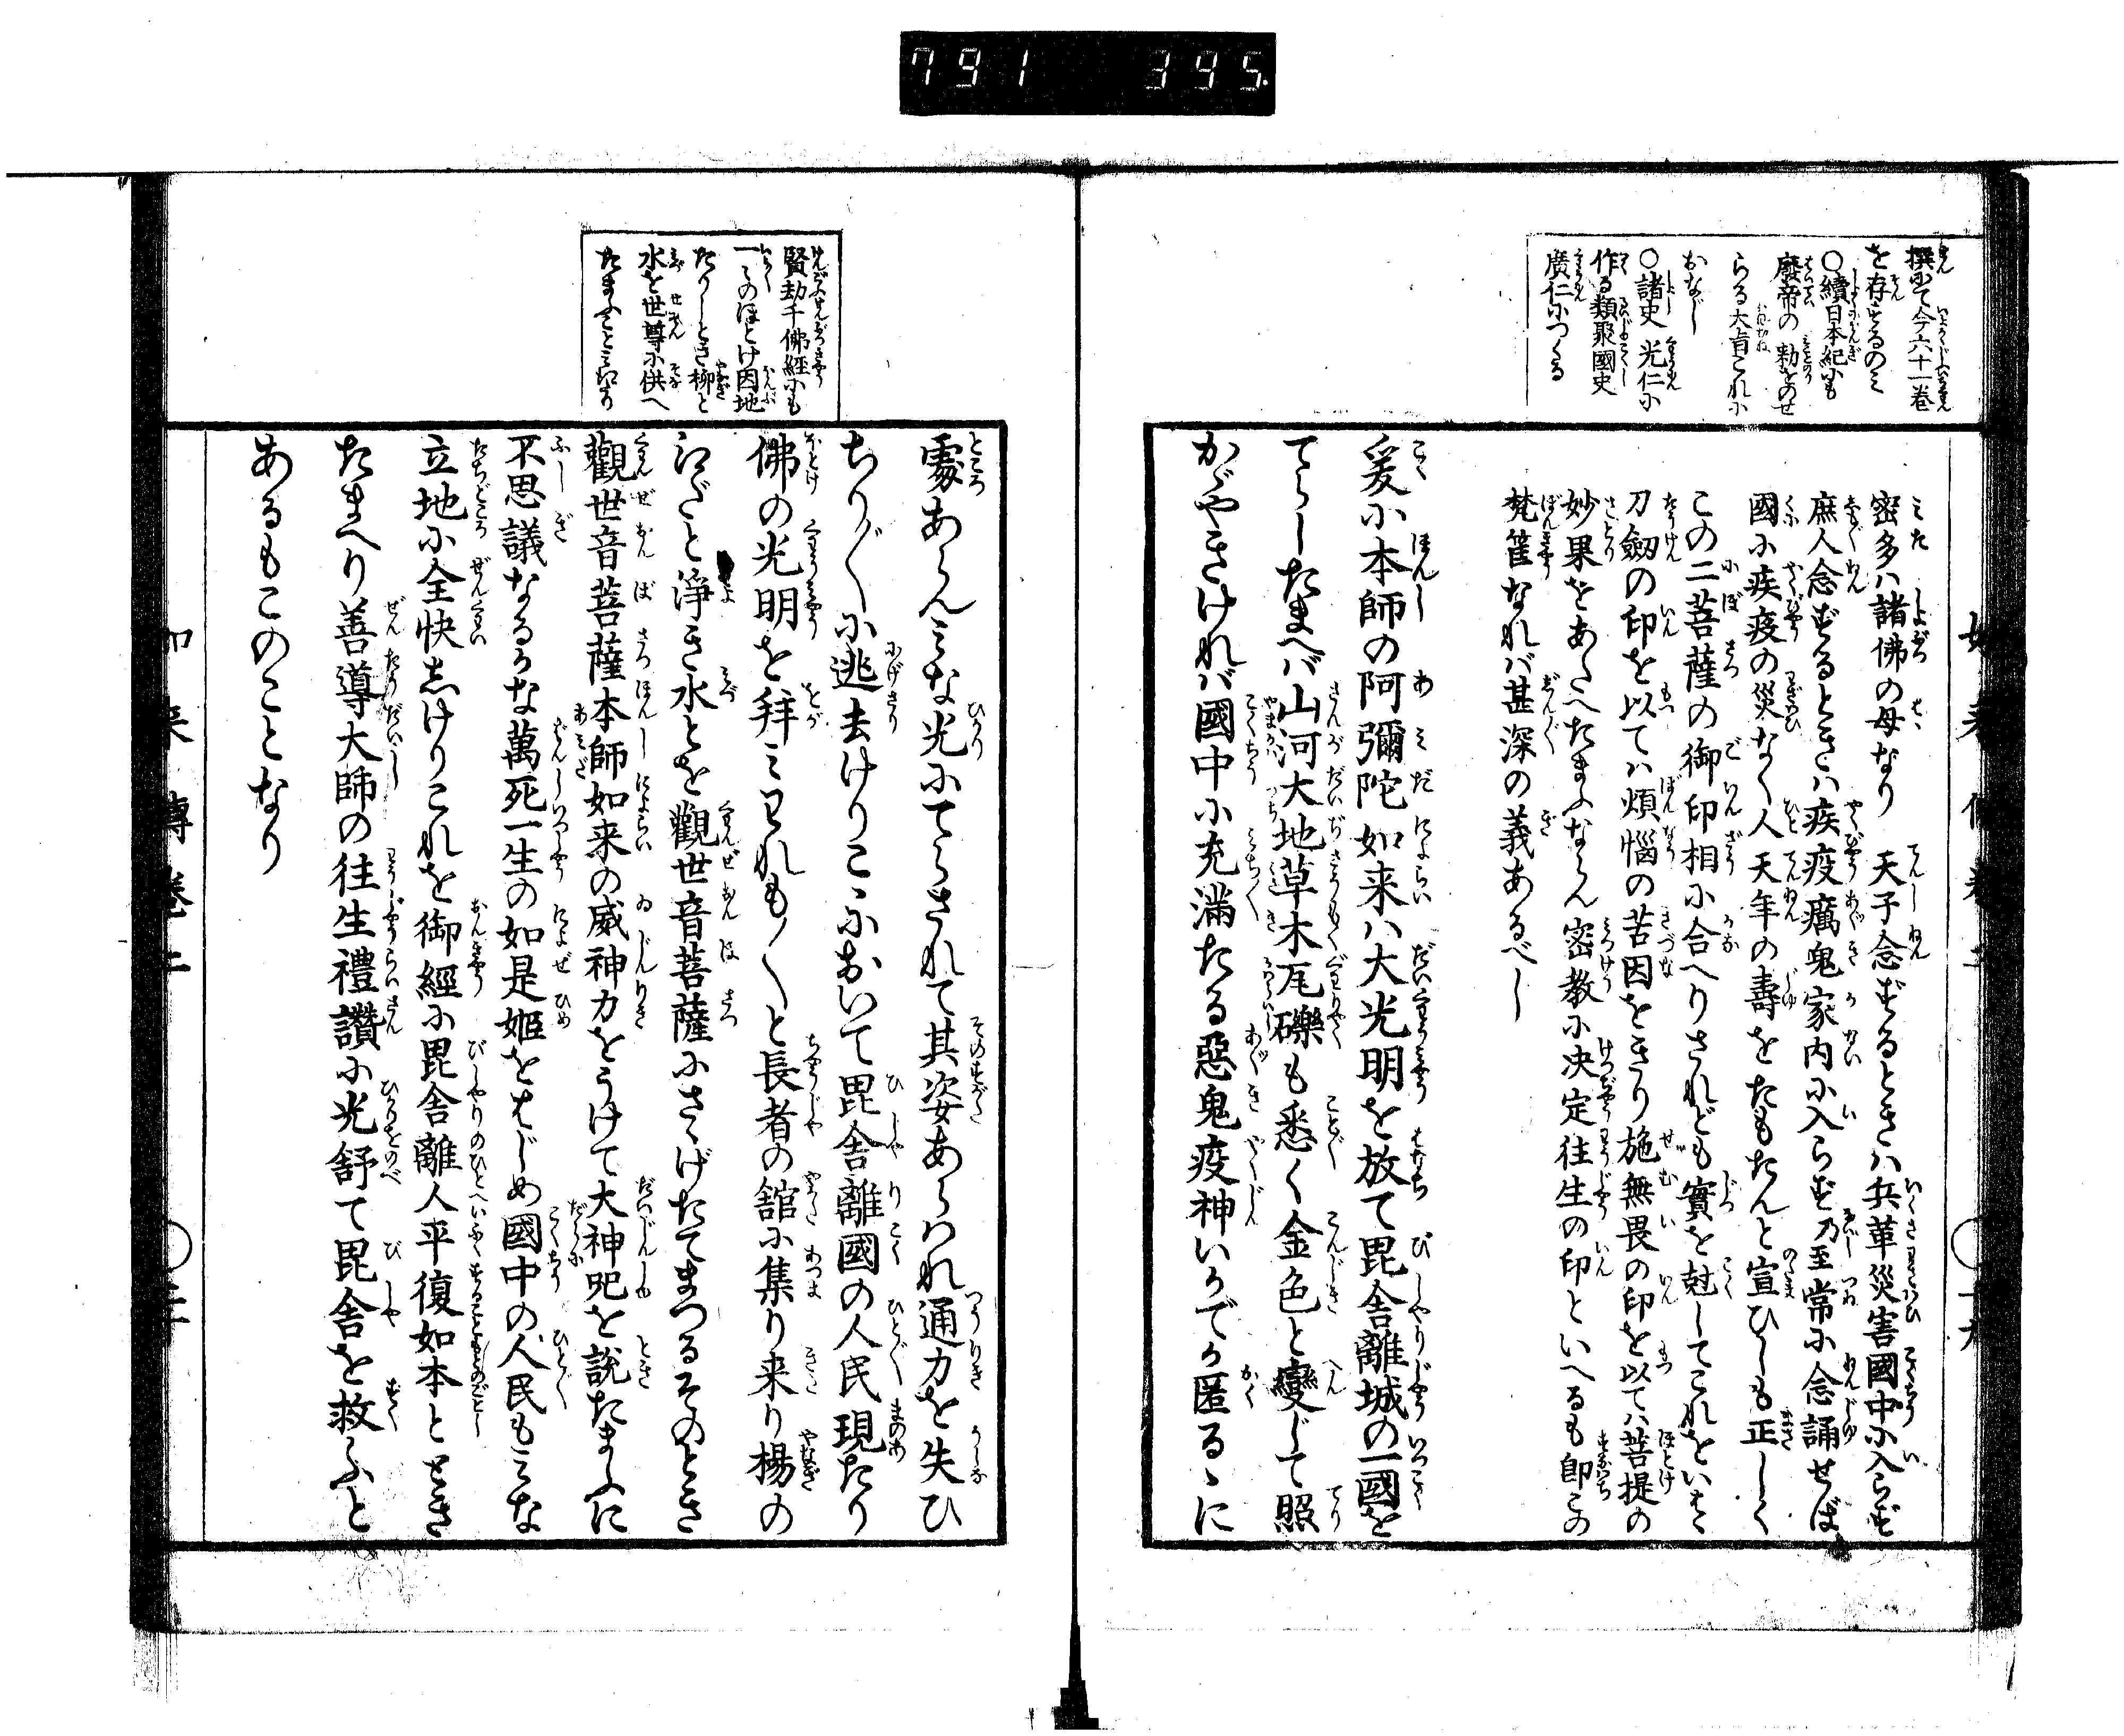 791 395.
撰にて今六十一巻
を存するのミ
○續日本紀にも
廢帝の勅をのせ
らる大旨これに
おなじ
○諸史光仁に
作る類聚國史
廣仁につくる
密多ハ諸佛の母なり 天子念ずるときハ兵革災害國中に入らず
庶人念ずるときハ疾疫癘鬼家内に入らず乃至常に念誦せば
國に疾疫の災なく人天年の壽をたもたんと宣ひしも正しく
この二菩薩の御印相に合へりされども實を尅してこれをいはゞ
刀劔の印を以てハ煩惱の苦因をきり施無畏の印を以てハ菩提の
妙果をあたへたまふならん密教に决定往生の印といへるも即この
梵筐なれバ甚深の義あるべし
爰に本師の阿彌陀如来ハ大光明を放て毘舎離城の一國を
てらしたまへバ山河大地草木瓦礫も悉く金色と變じて照
かゞやきけれバ國中に充滿たる惡鬼疫神いかでか匿るゝに
賢劫千佛經にも
一々のほとけ因地
たりしとき柳と
水を世尊に供へ
たまふことミえたり
處あらんミな光にてらされて其姿あらハれ通力を失ひ
ちり〴〵に逃去けりこゝにおいて毘舎離國の人民現たり
佛の光明を拜ミわれも〳〵と長者の舘に集り来り楊の
えだと淨き水とを觀世音菩薩にさゝげたてまつるそのとき
觀世音菩薩本師如来の威神力をうけて大神呪を説たまふに
不思議なるかな萬死一生の如是姫をはじめ國中の人民もミな
立地に全快しけりこれを御經に毘舎離人平復如本ととき
たまへり善導大師の往生禮讚に光舒て毘舎を救ふと
あるもこのことなり